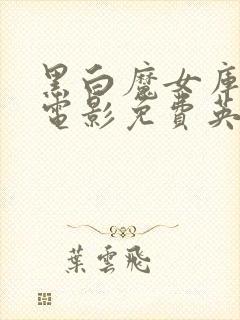 黑白魔女庫
電影免費英
葉雲飛